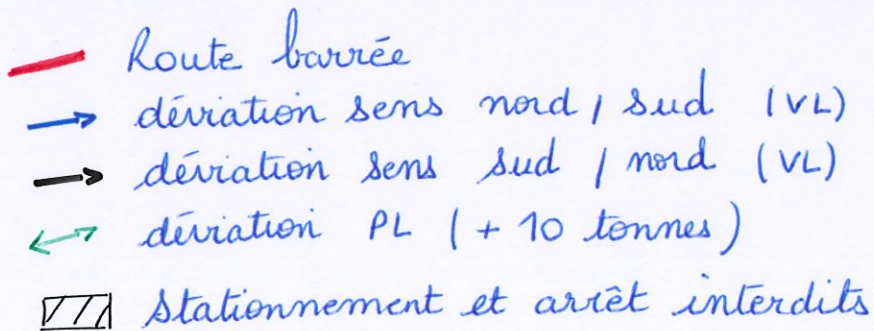 Route barrée
déviation sens nord / sud (VL)
déviation sens sud / nord (VL)
déviation PL (+ 10 tonnes)
Stationnement et arrêt interdits